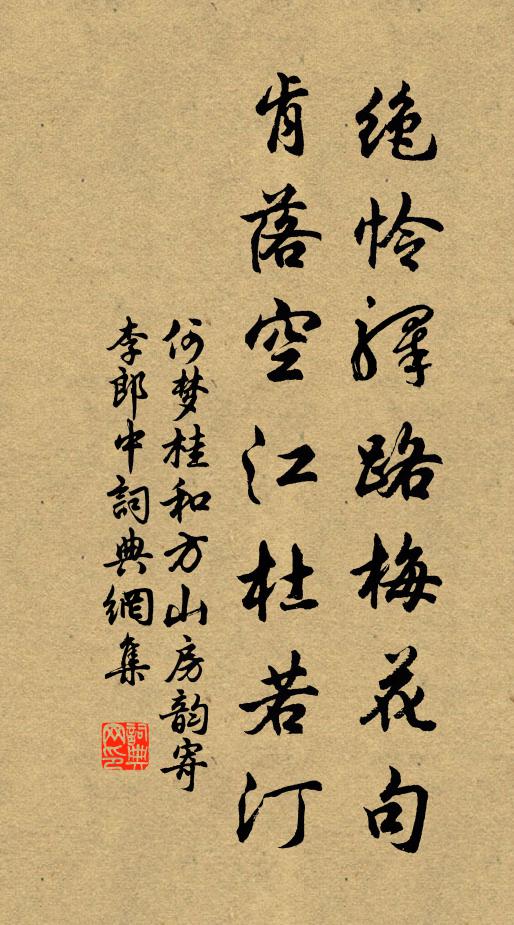 绝怜驿路梅花句
肯落空江杜若汀
何梦桂和方山房韵寄
李郎中詞典網集
詞典
网印